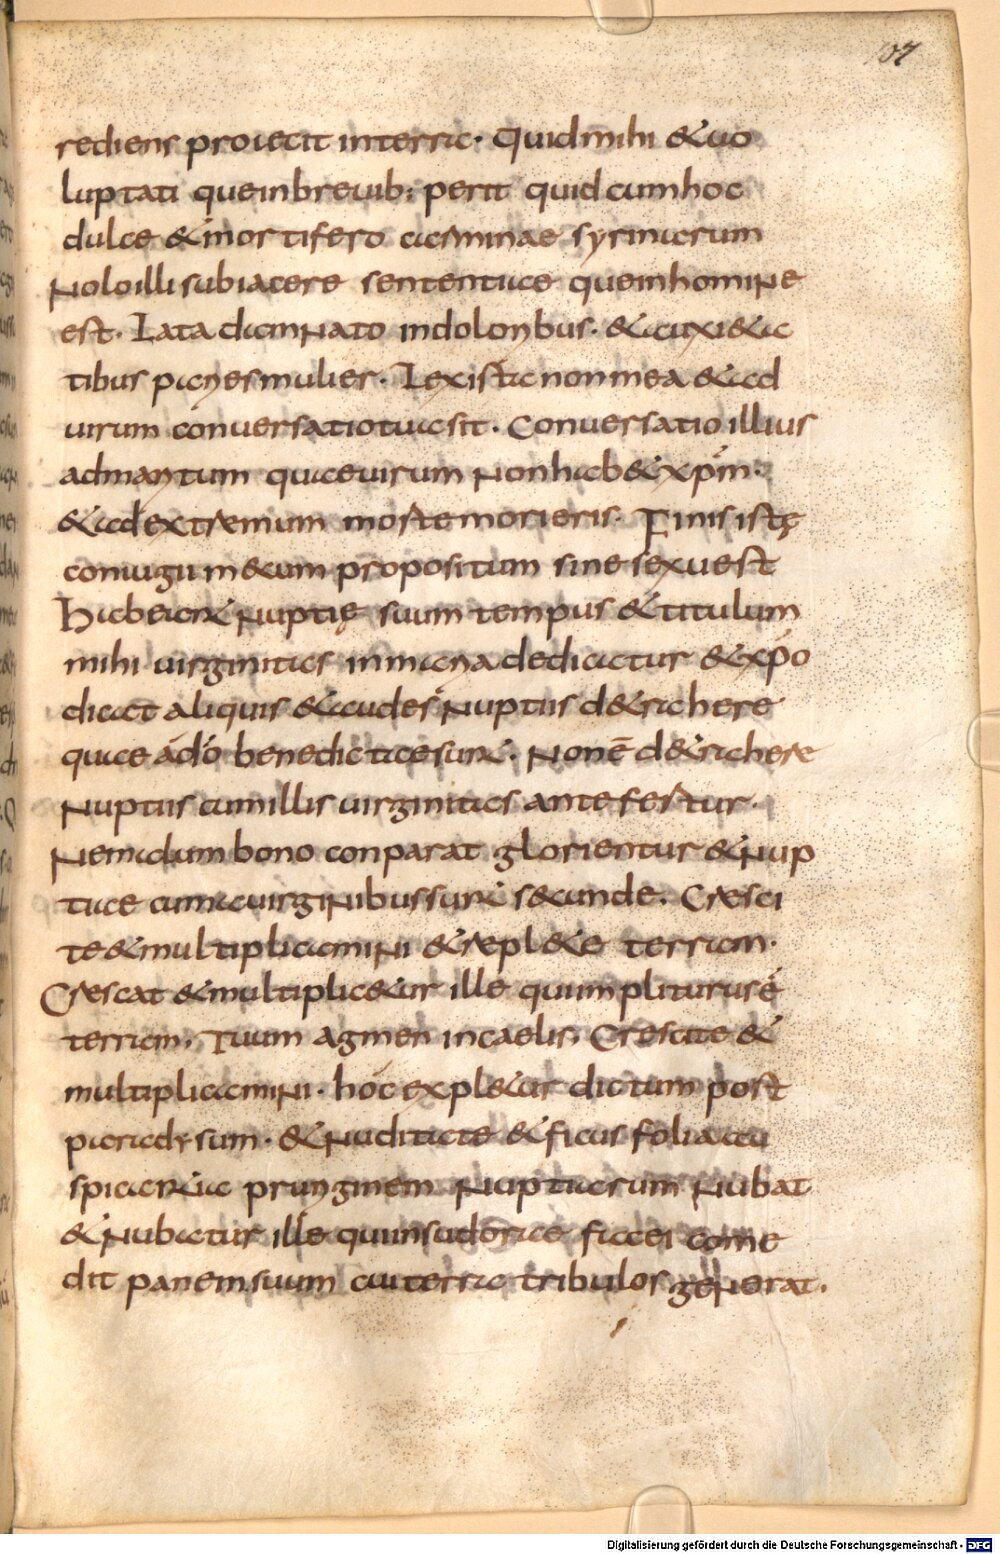 107
rediens proiecit interra. Quid mihi & uo
luptati que in breuib; perit quid cum hoc
dulce & mortifero carminae syrinarum
Nolo illi subiacere sententiae que in homine
est. Lata damnato in doloribus. & anxi&a
tibus paries mulier. Lex ista non mea & ad
uirum conuersatio tua sit. Conuersatio illius
ad maritum quae uirum non hab& xpm.
& ad extremum morte morieris. Finis istę
coniugii mecum propositum sine sexu est
Habeant nuptię suum tempus & titulum
mihi uirginitas in maria dedicatur & xpo
dicat aliquis & audes nuptiis d&rahere
quae a do benedictae sunt. Non ē d&rahere
nuptiis cum illis uirginitas antefertur.
Nemalum bono conparat glorientur & nup
tiae cum a uirginibus sunt secunde. Cresci
te & multiplicamini & repl&e terram.
Crescat & multiplic&ur ille qui impliturus ē
terram. Tuum agmen in caelis. Crescite &
multiplicamini. hoc expl&ur dictum post
paradisum. & nuditate & ficus folia au
spicantia pruriginem nuptiarum nubat
& nubatur ille qui in sudorae faciei come
dit panem suum cui terra tribulos generat.
Digitalisierung gefördert durch die Deutsche Forschungsgemeinschaft - DFG